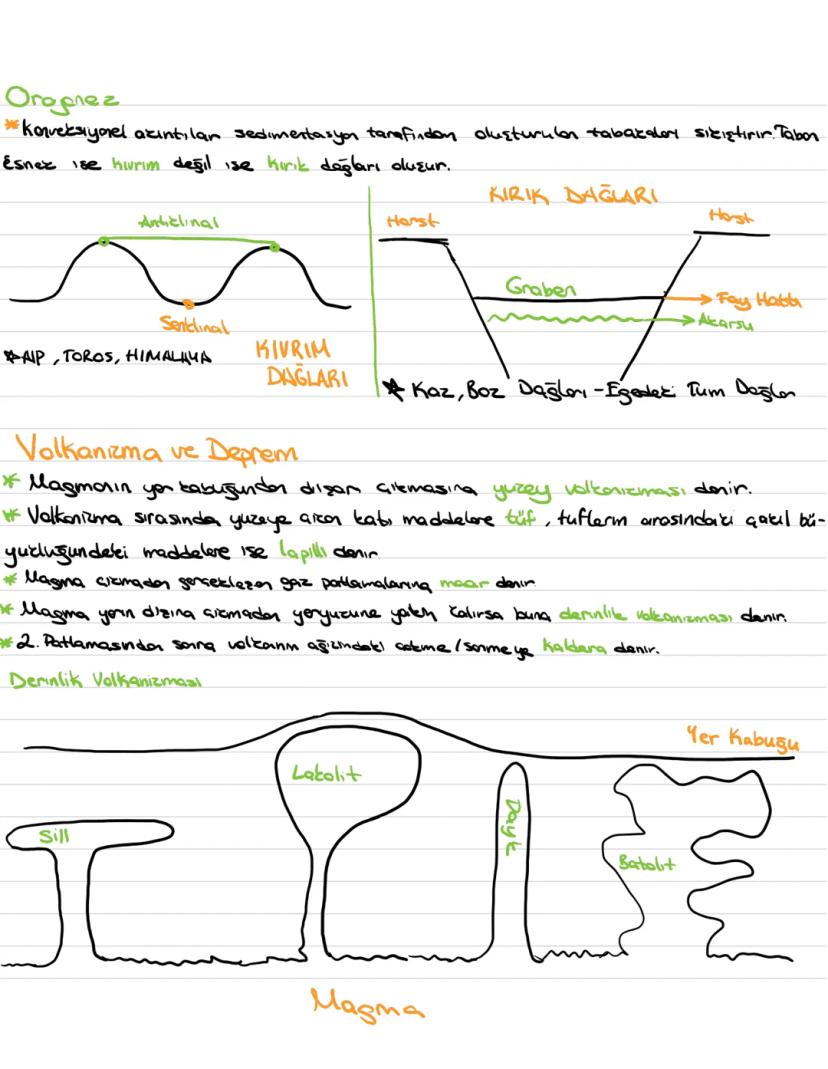 Orojenez
* Konveksiyonel akıntılar sedimentasyon tarafından oluşturulan tabakaları sıkıştırır. Taban
Esnek ise kıvrım değil ise kırık dağları oluşur.
KIRIK DAĞLARI
Antiklinal
Horst
Horst
Graben
Fay Hattı
Akarsu
Senklinal
* AlP, TOROS, HIMALAYA
KIVRIM
DAĞLARI
* Kaz, Boz Dağları - Egedeki Tüm Dağlar
Volkanizma ve Deprem
* Magmanın yer kabuğundan dışarı çıkmasına yüzey volkanizması denir.
* Volkanizma sırasında yüzeye çıkan katı maddelere tüf, tüflerin arasındaki çakıl bü-
yüklüğündeki maddelere ise lapilli denir
* Magma çıkmadan gerçekleşen gaz patlamalarına maar denir
* Magma yerin dışına çıkmadan yeryüzüne yakın kalırsa buna derinlik volkanizması denir.
* 2. Patlamasından sonra volkanın ağızındaki çökme / sönmeye kaldera denir.
Derinlik Volkanizması
Yer Kabuğu
Lakolit
Sill
Dayk
Batolit
Magma